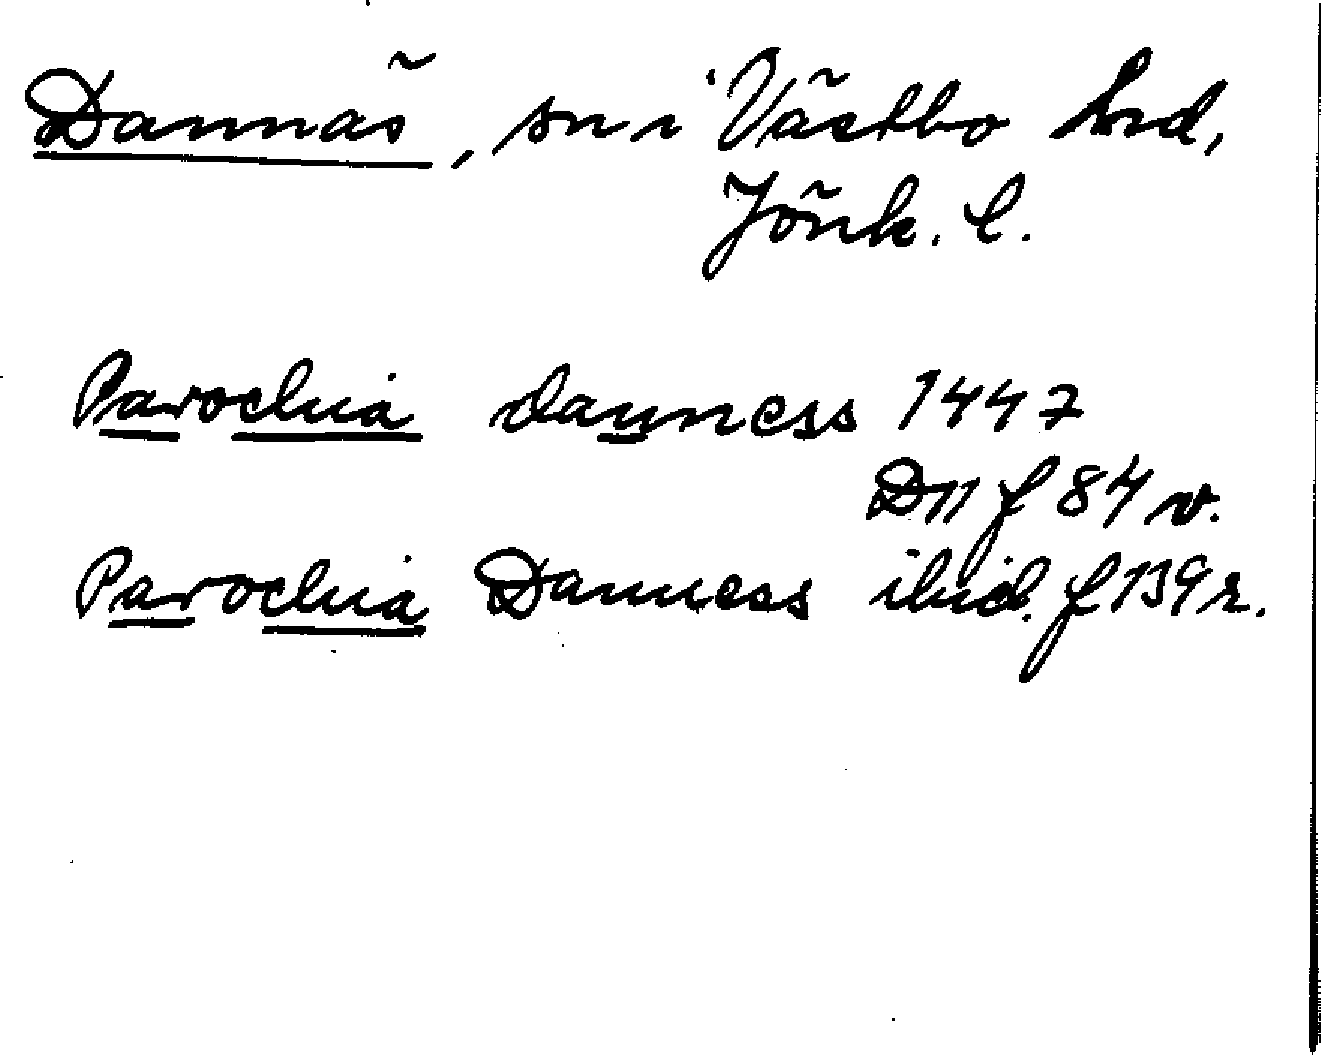 Dannäs, sn i Västbo hrd,
Jönk. l.
Parochia danness 1447
D11 f 84 v.
Parochia Danness ibid. f 139 r.